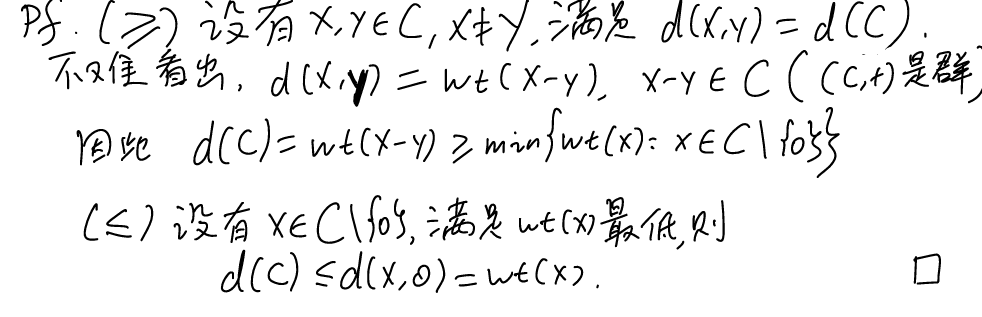 Pf. (≥) 设有 x,y∈C, x≠y, 满足 d(x,y) = d(C).
不难看出, d(x,y) = wt(x-y), x-y∈C ((C,+)是群)
因此 d(C) = wt(x-y) ≥ min{wt(x): x∈C\{0}}
(≤) 设有 x∈C\{0}, 满足 wt(x) 最低, 则
d(C) ≤ d(x,0) = wt(x). □